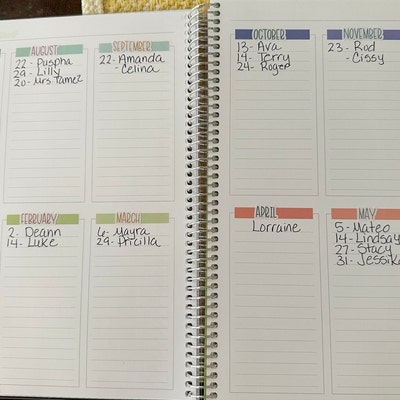 AUGUST
22 - Puspha
29 - Lilly
20 - Mrs. Tamez
SEPTEMBER
22 - Amanda
- Celina
OCTOBER
13 - Ava
14 - Terry
24 - Roger
NOVEMBER
23 - Rod
- Cissy
FEBRUARY
2 - Deann
14 - Luke
MARCH
6 - Mayra
29 - Pricilla
APRIL
Lorraine
MAY
5 - Mateo
14 - Lindsay
27 - Stacy
31 - Jessika